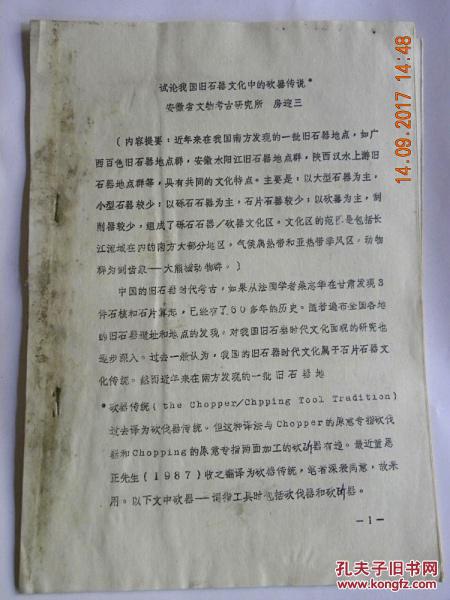 试论我国旧石器文化中的砍器传说*
安徽省文物考古研究所 房迎三
(内容提要:近年来在我国南方发现的一批旧石器地点,如广
西百色旧石器地点群,安徽水阳江旧石器地点群,陕西汉水上游旧
石器地点群等,具有共同的文化特点。主要是:以大型石器为主,
小型石器较少;以砾石石器为主,石片石器较少;以砍器为主,刮
削器较少,组成了砾石石器/砍器文化区。文化区的范围是包括长
江流域在内的南方大部分地区。气候属热带和亚热带季风区。动物
群为剑齿象——大熊猫动物群。)
中国的旧石器时代考古,如果从法国学者桑志华在甘肃发现3
件石核和石片算起,已经有了60多年的历史。随着遍布全国各地
的旧石器遗址和地点的发现。对我国旧石器时代文化面貌的研究也
逐步深入。过去一般认为,我国的旧石器时代文化属于石片石器文
化传统。然而近年来在南方发现的一批旧石器地
*砍器传统(the Chopper/Chpping Tool Tradition)
过去译为砍伐器传统。但这种译法与Chopper的原意专指砍伐
器和Chopping的原意专指两面加工的砍斫器有違。最近董恩
正先生(1987)收之翻译为砍器传统,笔者深表同意,故采
用。以下文中砍器一词指工具时包括砍伐器和砍斫器。
—1—
14.09.2017 14:48
孔夫子旧书网
www.kongfz.com